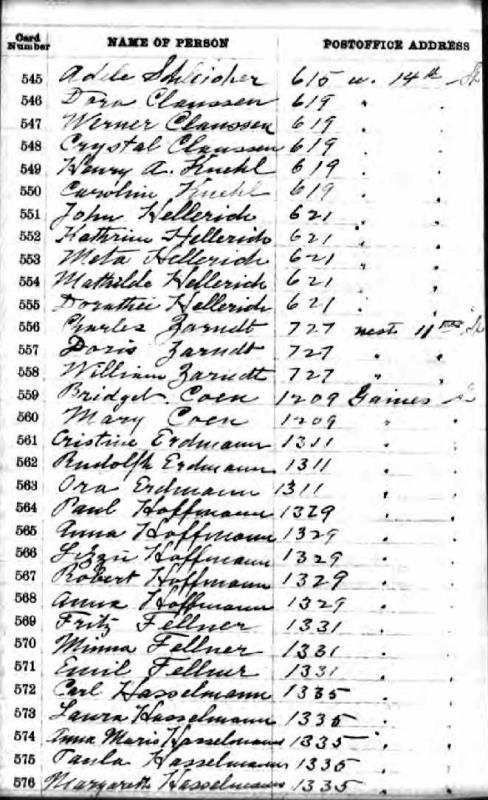 Card Number NAME OF PERSON POSTOFFICE ADDRESS
545 Adele Schleicher 615 w. 14th St
546 Dora Claussen 619 "
547 Werner Claussen 619 " .
548 Crystal Claussen 619 " .
549 Henry A. Kuehl 619 " .
550 Caroline Kuehl 619 " .
551 John Hellerich 621 " .
552 Kathrine Hellerich 621 " .
553 Meta Hellerich 621 " .
554 Mathilde Hellerich 621 " .
555 Dorathee Hellerich 621 " .
556 Charles Zarndt 727 west 11th St
557 Doris Zarndt 727 " "
558 William Zarndt 727 " "
559 Bridget Coen 1209 Gaines St
560 Mary Coen 1209 " .
561 Cristine Erdmann 1311 " .
562 Rudolph Erdmann 1311 " .
563 Ora Erdmann 1311 " .
564 Paul Hoffmann 1329 " .
565 Anna Hoffmann 1329 " .
566 Lizzie Hoffmann 1329 " .
567 Robert Hoffmann 1329 " .
568 Anna Hoffmann 1329 " .
569 Fritz Fellner 1331 " .
570 Minna Fellner 1331 " .
571 Emil Fellner 1331 " .
572 Carl Hasselmann 1335 " .
573 Laura Hasselmann 1335 " .
574 Anna Marie Hasselmann 1335 " .
575 Paula Hasselmann 1335 " .
576 Margareth Hasselmann 1335 " .